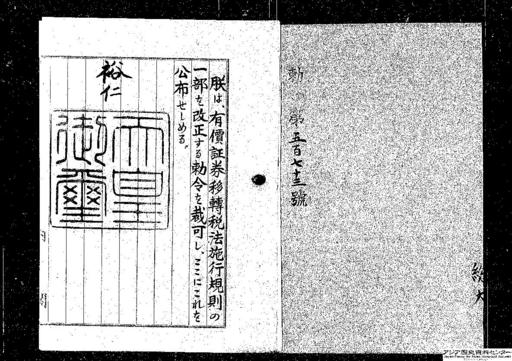 勅令第五百七十三號
朕は、有價証券移轉税法施行規則の
一部を改正する勅令を裁可し、ここにこれを
公布せしめる。
裕仁
天皇
御璽
アジア歴史資料センター